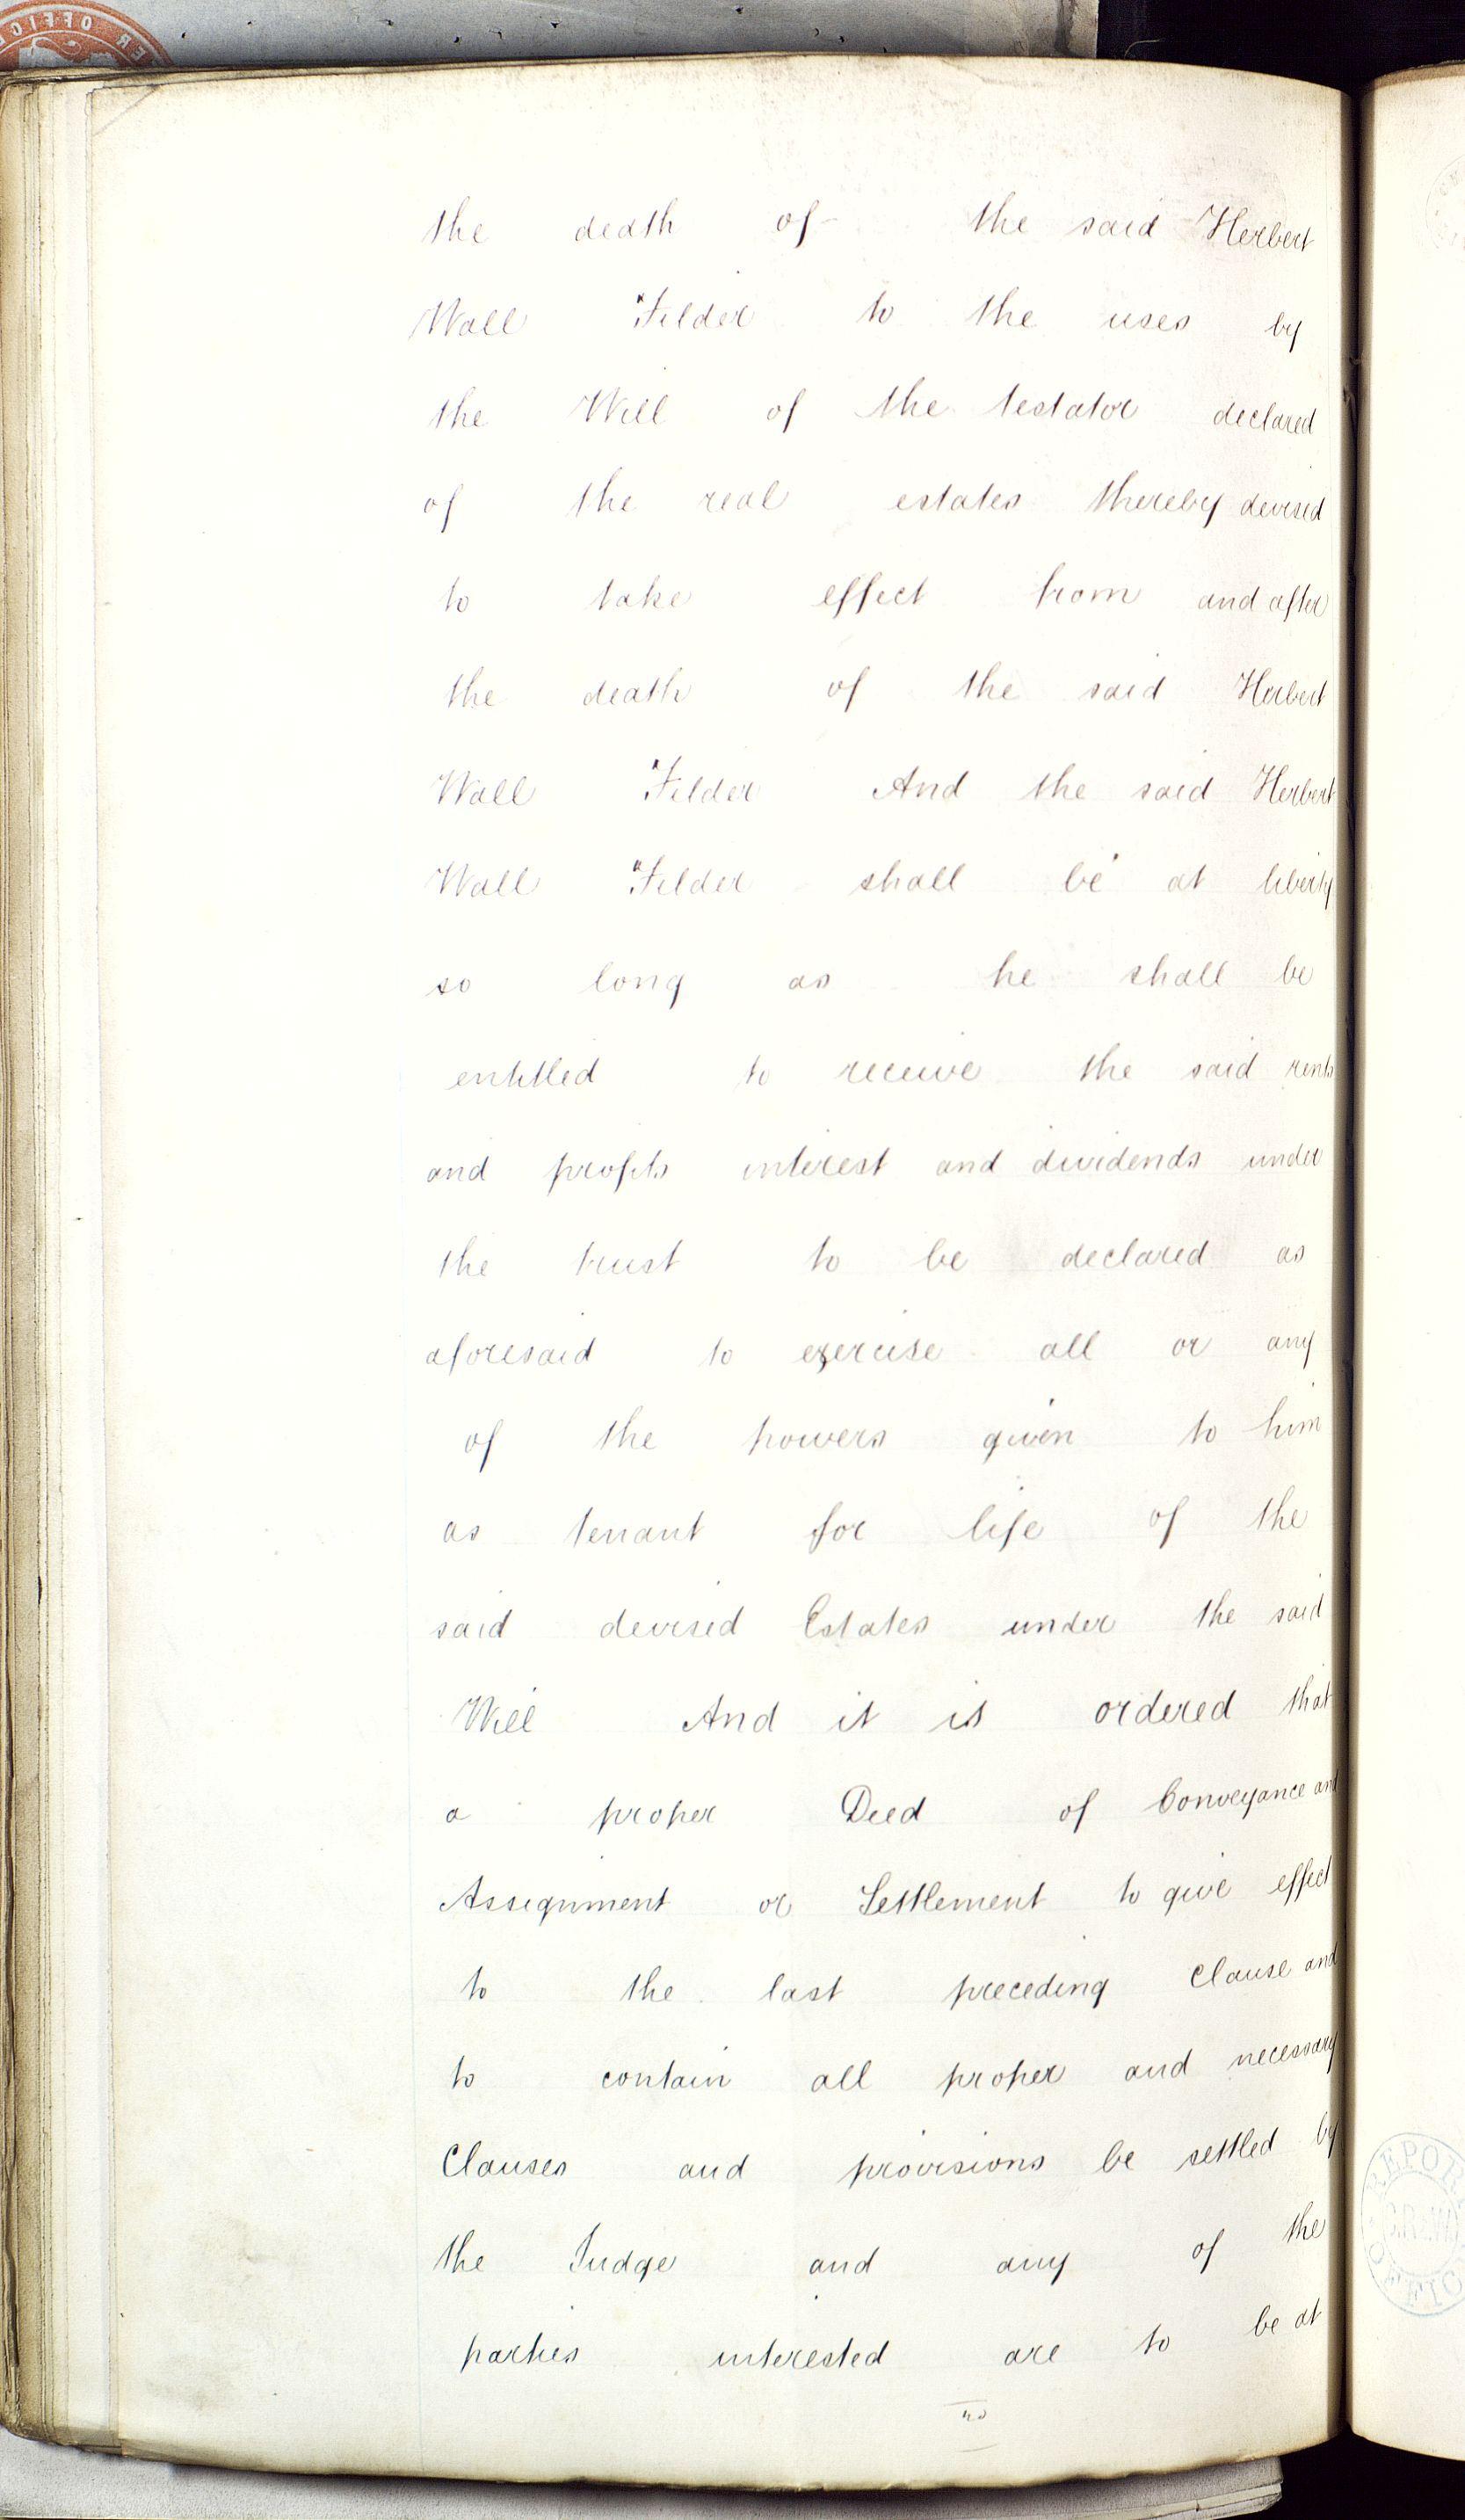 the death of the said Herbert
Wall Filder to the uses by
the Will of the testator declared
of the real estates thereby devised
to take effect from and after
the death of the said Herbert
Wall Filder And the said Herbert
Wall Filder shall be at liberty
so long as he shall be
entitled to receive the said rents
and profits interest and dividends under
the trust to be declared as
aforesaid to exercise all or any
of the powers given to him
as tenant for life of the
said devised Estates under the said
Will And it is ordered that
a proper Deed of Conveyance and
Assignment or Settlement to give effect
to the last preceding Clause and
to contain all proper and necessary
Clauses and provisions be settled by
the Judge and any of the
parties interested are to be at